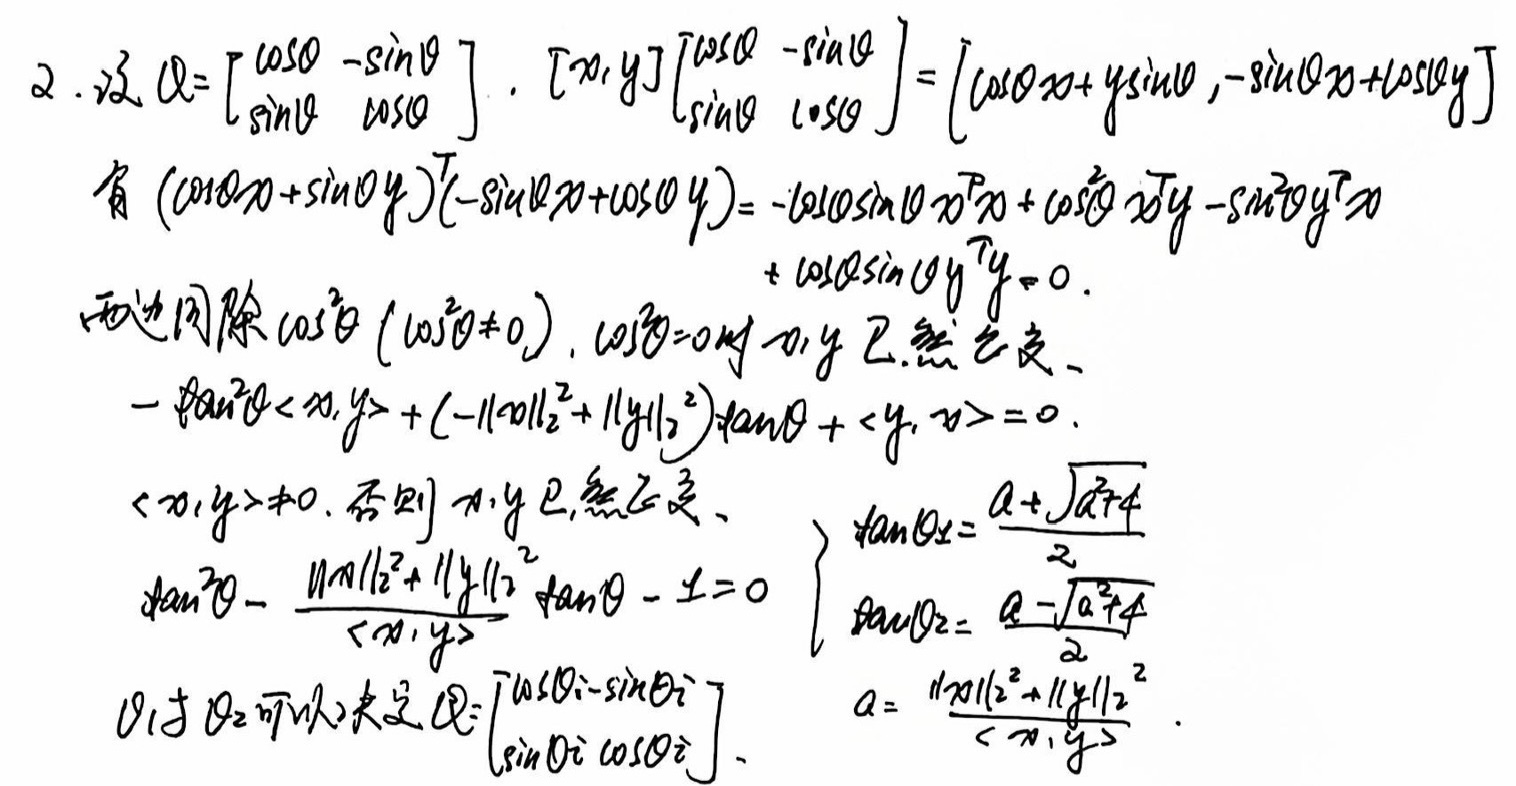 2. 设 Q = [cosθ -sinθ; sinθ cosθ]. [x, y][cosθ -sinθ; sinθ cosθ] = [cosθx + ysinθ, -sinθx + cosθy]
有 (cosθx + sinθy)^T(-sinθx + cosθy) = -cosθsinθ x^Tx + cos²θ x^Ty - sin²θ y^Tx
+ cosθsinθ y^Ty = 0.
两边同除 cos²θ (cos²θ≠0), cos²θ=0时 x, y 已然正交、
- tan²θ<x, y> + (-||x||₂² + ||y||₂²)tanθ + <y, x> = 0.
<x, y>≠0. 否则 x, y 已然正交、
tan²θ - (||x||₂² + ||y||₂²)/<x, y> tanθ - 1 = 0
tanθ1 = (a + √(a²+4))/2
tanθ2 = (a - √(a²+4))/2
a = (||x||₂² + ||y||₂²)/<x, y>.
θ1与θ2可以决定 Q = [cosθi -sinθi; sinθi cosθi].